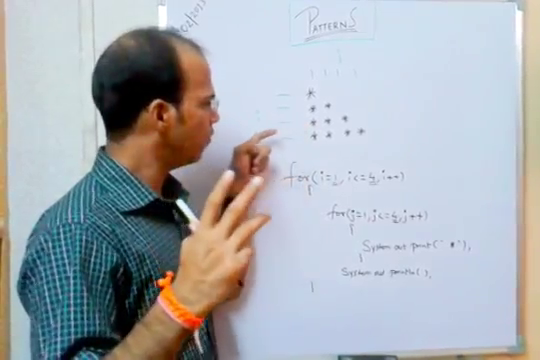 02/2013
PATTERNS
*
* *
* * *
* * * *
for(i=1, i<=4, i++)
for(j=1, j<=4, j++)
System out print(" * "),
System out println( ),